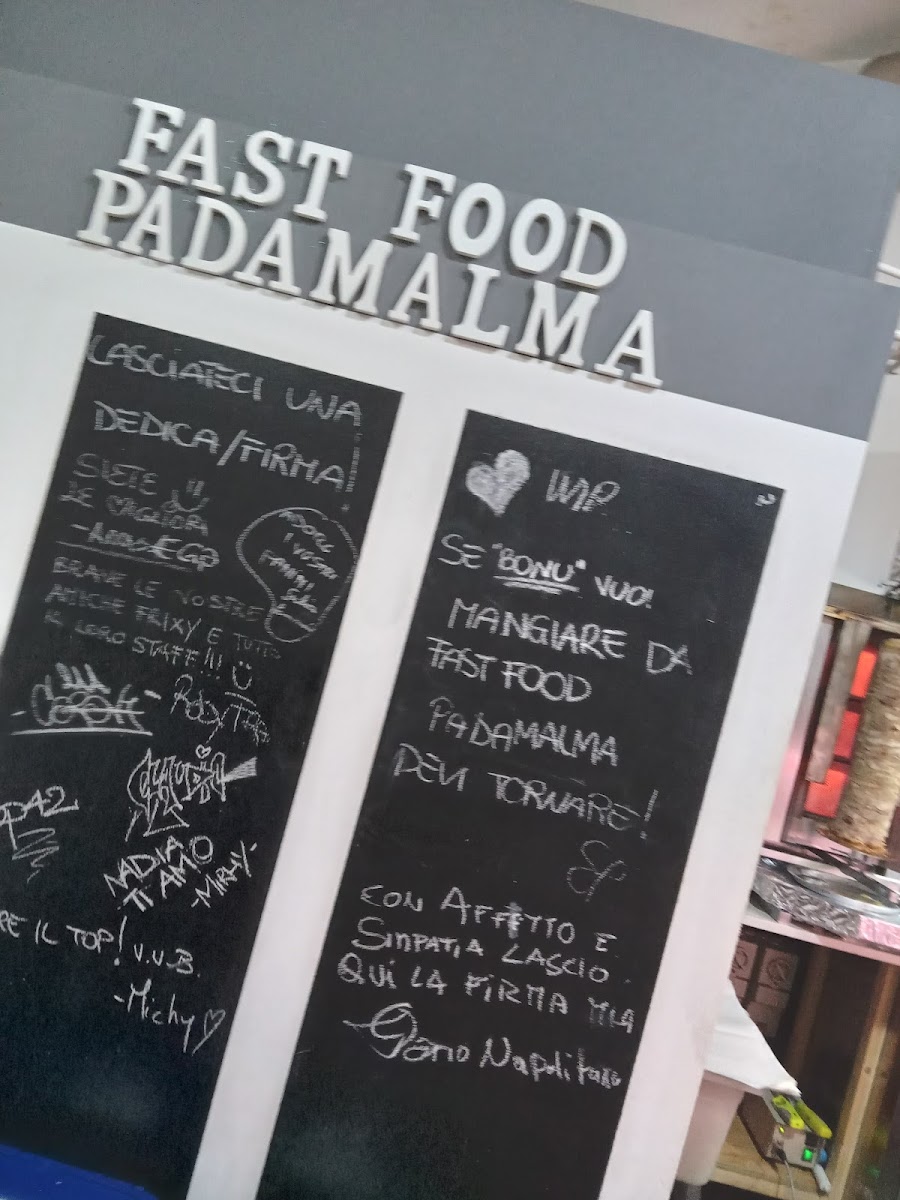 FAST FOOD
PADAMALMA
LASCIATECI UNA
DEDICA/FIRMA
SIETE
LE MIGLIORI
BRAVE LE VOSTRE
AMICHE FRIXY E TUTTO
IL LORO STAFF!!!
NADIA
TI AMO
-MIRHY-
RE IL TOP! V.V.B.
-Michy
VIP
SE "BONU" VUOI
MANGIARE DA
FAST FOOD
PADAMALMA
DEVI TORNARE!
CON AFFETTO E
SIMPATIA LASCIO
QUI LA FIRMA MIA
Napolitano